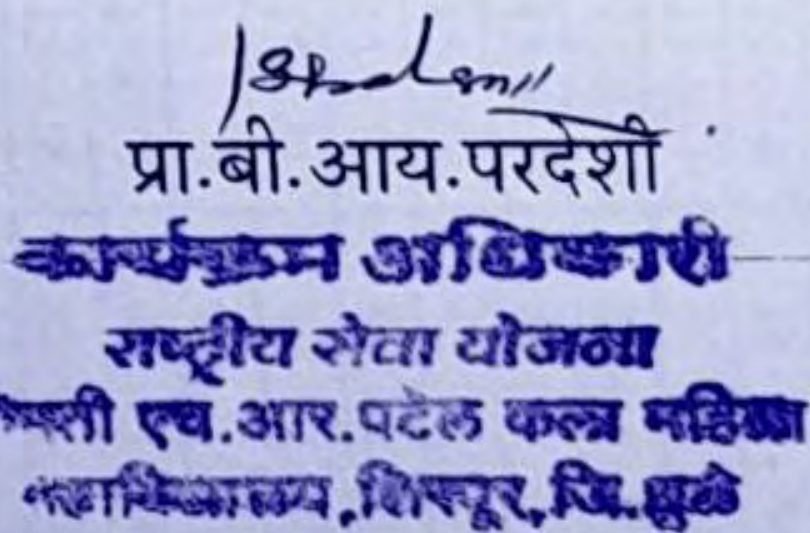 प्रा.बी.आय.परदेशी
कार्यक्रम अधिकारी
राष्ट्रीय सेवा योजना
एच.आर.पटेल कला महिला
महाविद्यालय,शिरपूर,जि.धुळे